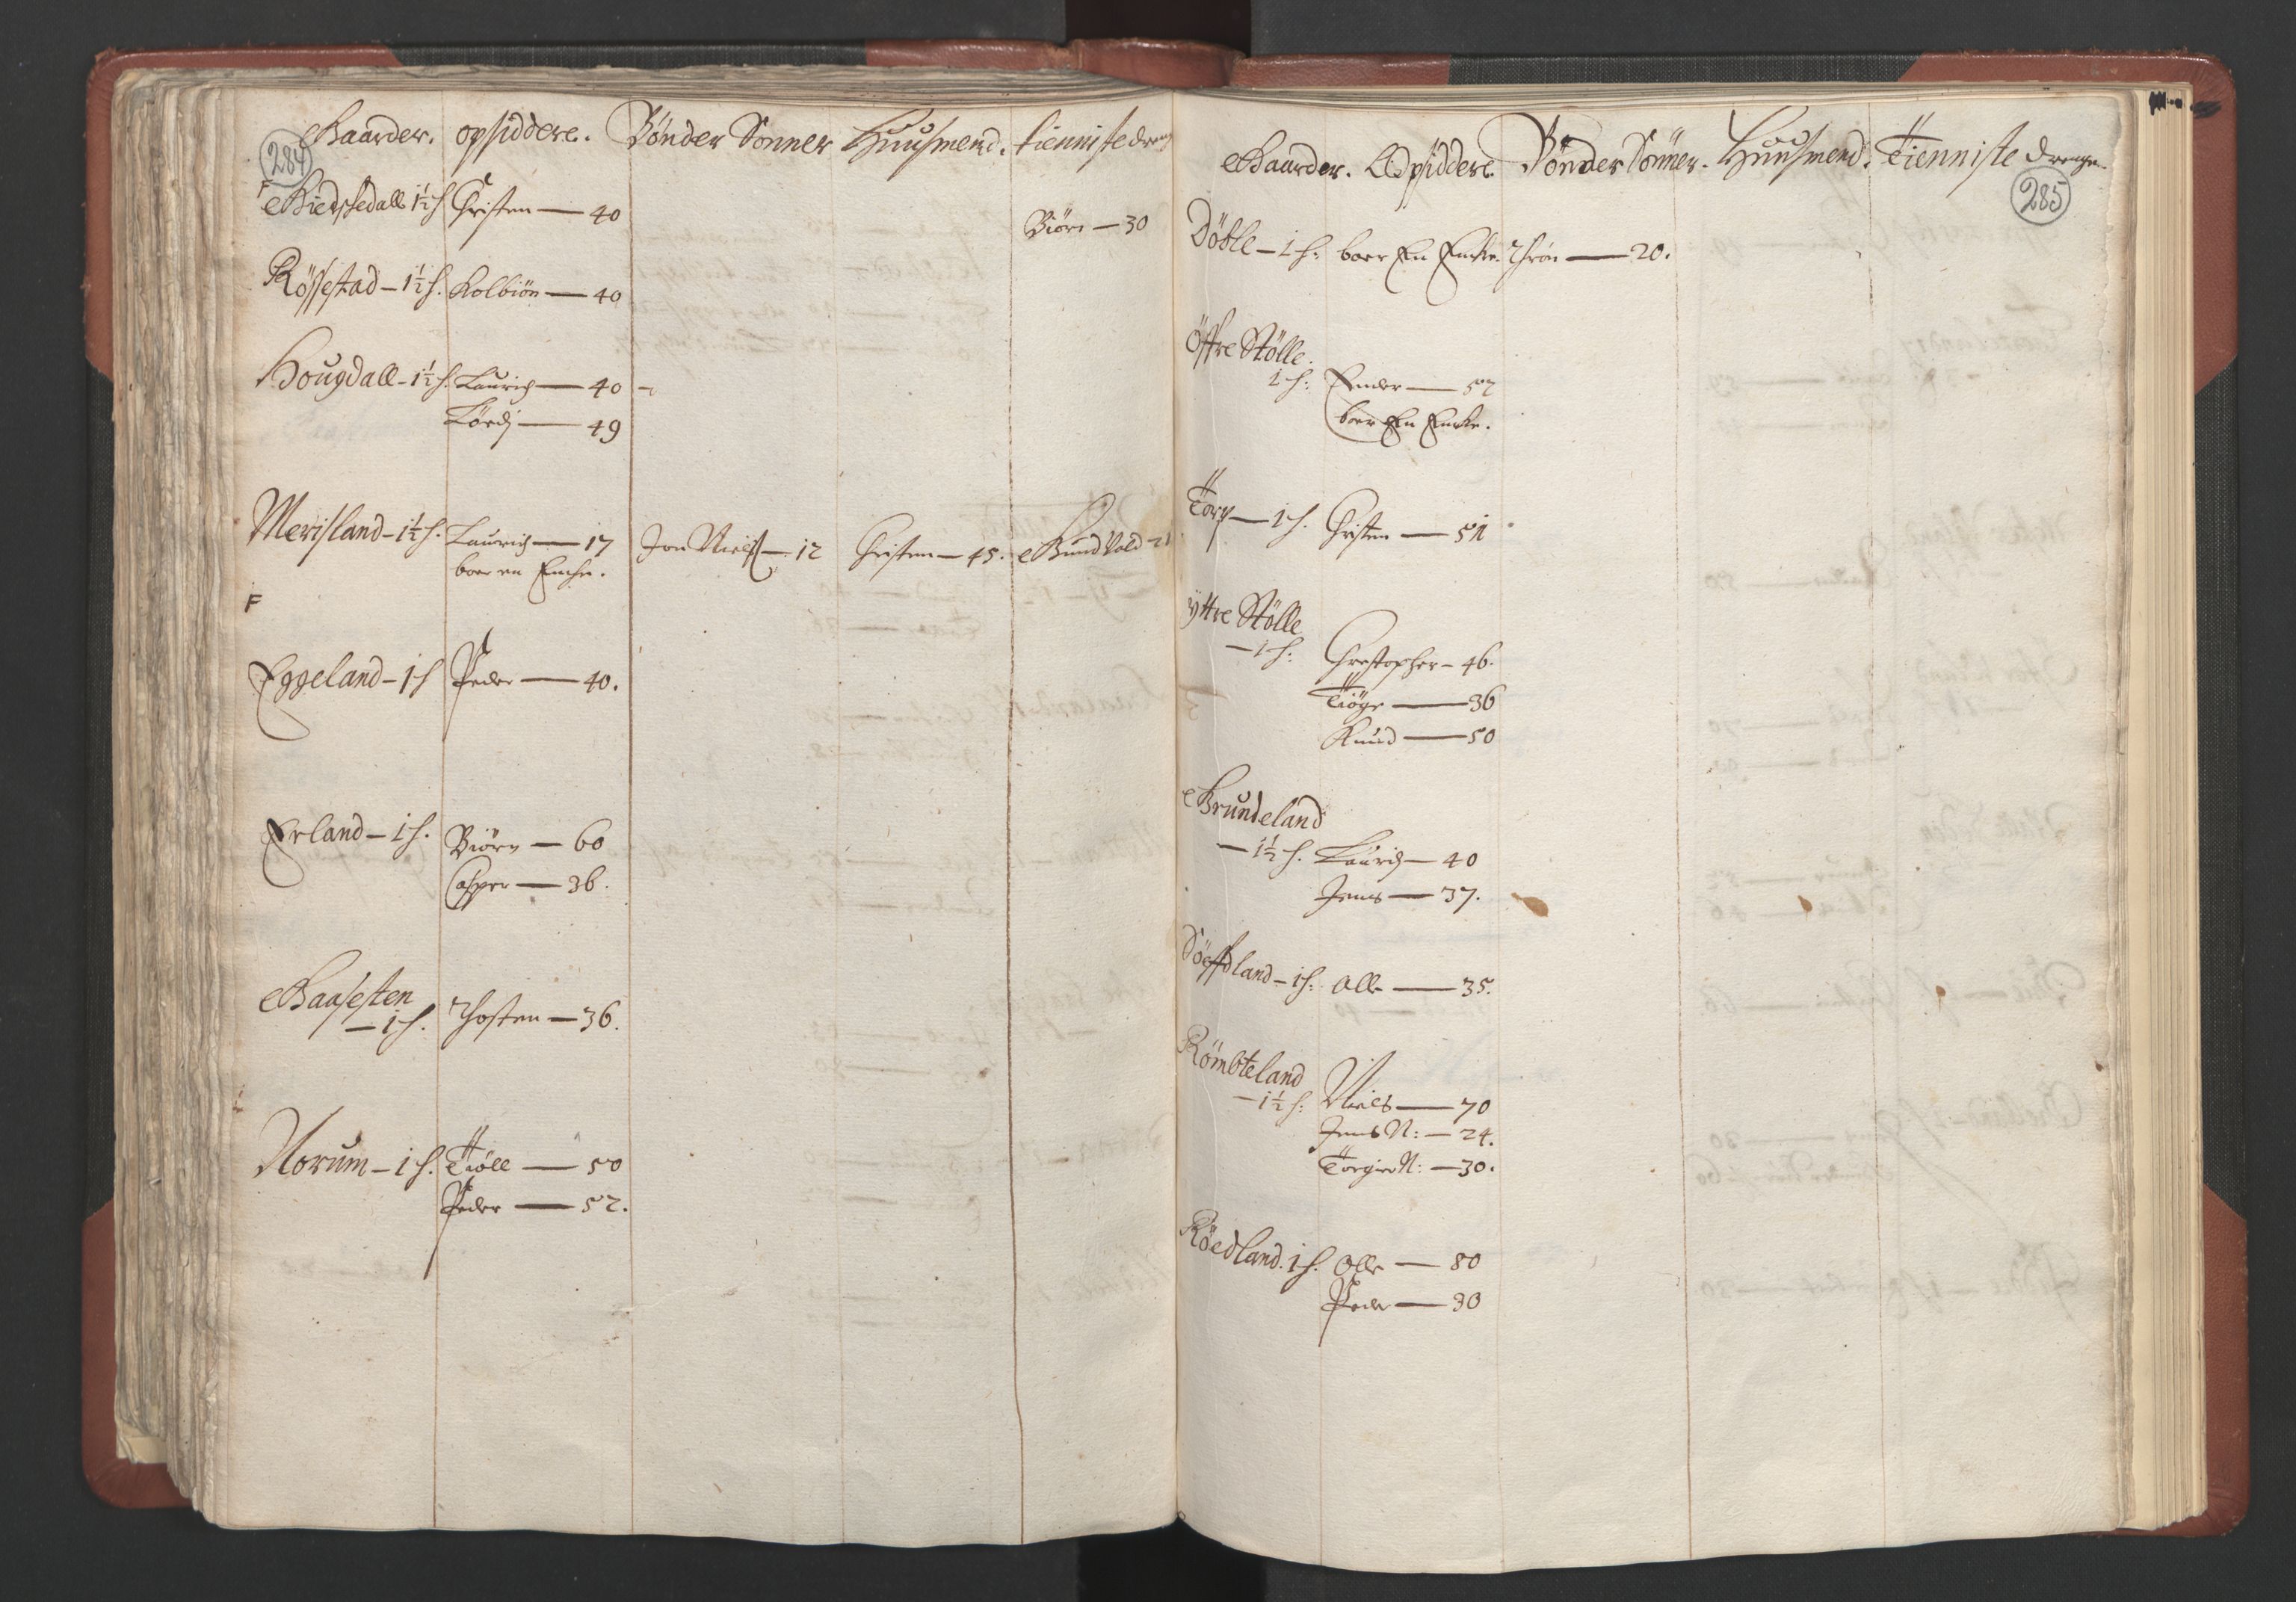 284
Gaarder. opsiddere. Bønder Sønner Huusmend. tienniste dren
Giedssedall 1½ h Christen — 40 Biørn — 30
Røssestad — 1½ h. Kolbiøn — 40
Hougdall — 1½ h. Lauridz — 40
Tørdj — 49
Merisland — 1½ h. Lauridz — 17 Jon Nielss — 12 Christen — 45. Gundvold — 21
boer en Encke.
F
Eggeland — 1 h Peder — 40.
Erland — 1 h. Biørn — 60
Casper — 36.
Gaasesten
— 1 h. Thosten — 36.
Norum — 1 h. Tiøll — 50
Peder — 52.
Gaarder. Opsiddere. Bønder Sønner. Huusmend. Tienniste drenge.
285
Døble — 1 h: boer En Encke. Thrón — 20.
Øffre Stølle.
1 h: Ender — 52
boer En Encke.
Torp — 1 h. Christen — 51
ÿttre Stølle
— 1 h: Chrestopher — 46.
Tiøge — 36
Knud — 50
Grundeland
— 1½ h. Lauridz — 40
Jens — 37.
Søeffdland — 1 h: Olle — 35.
Rømbteland
— 1½ h: Niels — 70
Jens N: — 24.
Torgier N: — 30.
Røedland. 1 h. Olle — 80
Peder — 30